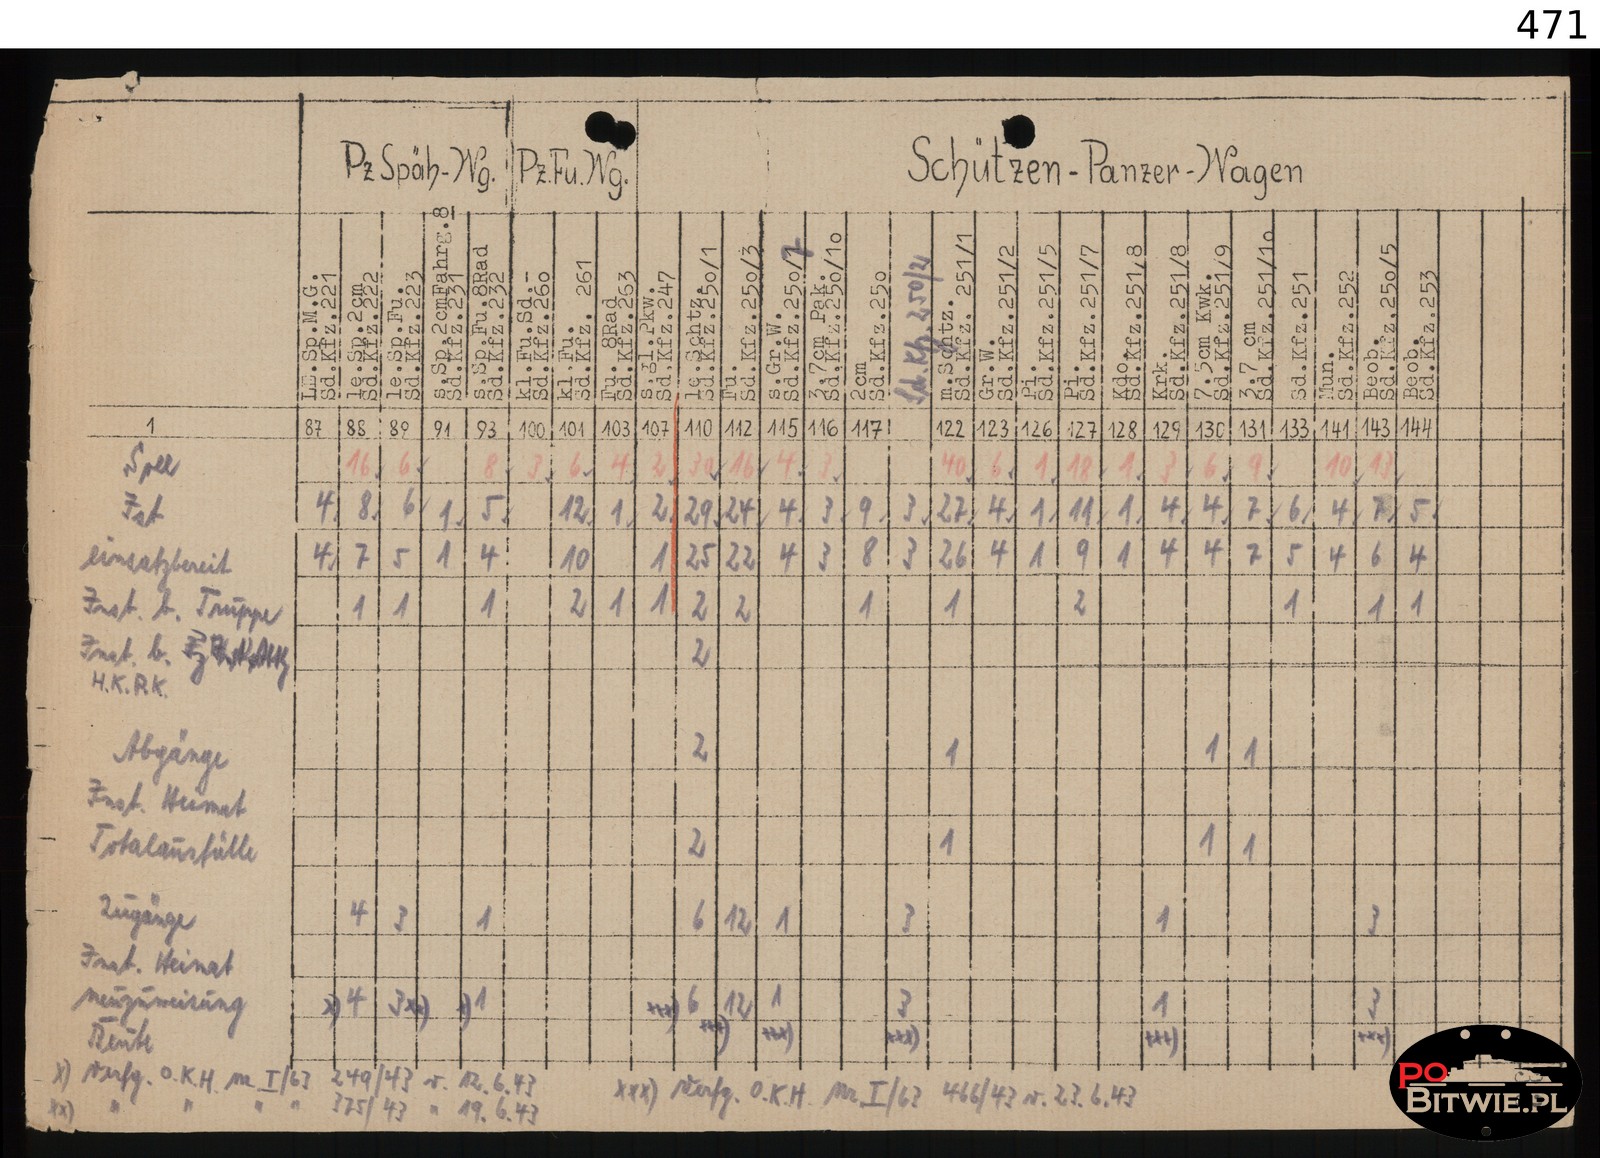 471
Pz Späh-Wg. Pz.Fu.Wg. Schützen-Panzer-Wagen
Sp.M.G. Sd.Kfz.221
le.Sp.2cm Sd.Kfz.222
le.Sp.Fu. Sd.Kfz.223
s.Sp.2cmFahrg.8 Sd.Kfz.231
s.Sp.Fu.8Rad Sd.Kfz.232
kl.Fu.Sd.- Sd.Kfz.260
kl.Fu. Sd.Kfz. 261
Fu. 8Rad Sd.Kfz.263
s.gl.Pkw. Sd.Kfz.247
le.Schtz. Sd.Kfz.250/1
Fu. Sd.Kfz.250/3
s.Gr.W. Sd.Kfz.250/7
3,7cm Pak. Sd.Kfz.250/10
2cm Sd.Kfz.250
Sd.Kfz.250/2
m.Schtz. Sd.Kfz. 251/1
Gr.W. Sd.Kfz.251/2
Pi. Sd.Kfz.251/5
Pi. Sd.Kfz.251/7
Kdo. Sd.Kfz.251/8
Krk. Sd.Kfz.251/8
7.5cm Kwk. Sd.Kfz.251/9
3,7 cm Sd.Kfz.251/10
Sd.Kfz.251
Mun. Sd.Kfz.252
Beob. Sd.Kfz.250/5
Beob. Sd.Kfz.253
1 87 88 89 91 93 100 101 103 107 110 112 115 116 117 122 123 126 127 128 129 130 131 133 141 143 144
Soll 16 6 8 3 6 4 2 30 16 4 3 40 6 1 18 1 3 6 9 10 13
Ist 4 8 6 1 5 12 1 2 29 24 4 3 9 3 27 4 1 11 1 4 4 7 6 4 7 5
einsatzbereit 4 7 5 1 4 10 1 25 22 4 3 8 3 26 4 1 9 1 4 4 7 5 4 6 4
Inst. b. Truppe 1 1 1 2 1 1 2 2 1 1 2 1 1 1
Inst. b. 2
H.K.P.K.
Abgänge 2 1 1 1
Inst. Heimat
Totalausfälle 2 1 1 1
Zugänge 4 3 1 6 12 1 3 1 3
Inst. Heimat
neuzuweisung x) 4 3 xx) x) 1 xxx) 6 12 1 3 1 3
xxx) xxx) xxx) xxx) xxx)
Beute
x) Verfg. O.K.H. Nr. I/63 249/43 v. 12.6.43 xxx) Verfg. O.K.H. Nr. I/63 466/43 v. 23.6.43
xx) " " " " 375/43 " 19.6.43
PO
BITWIE.PL